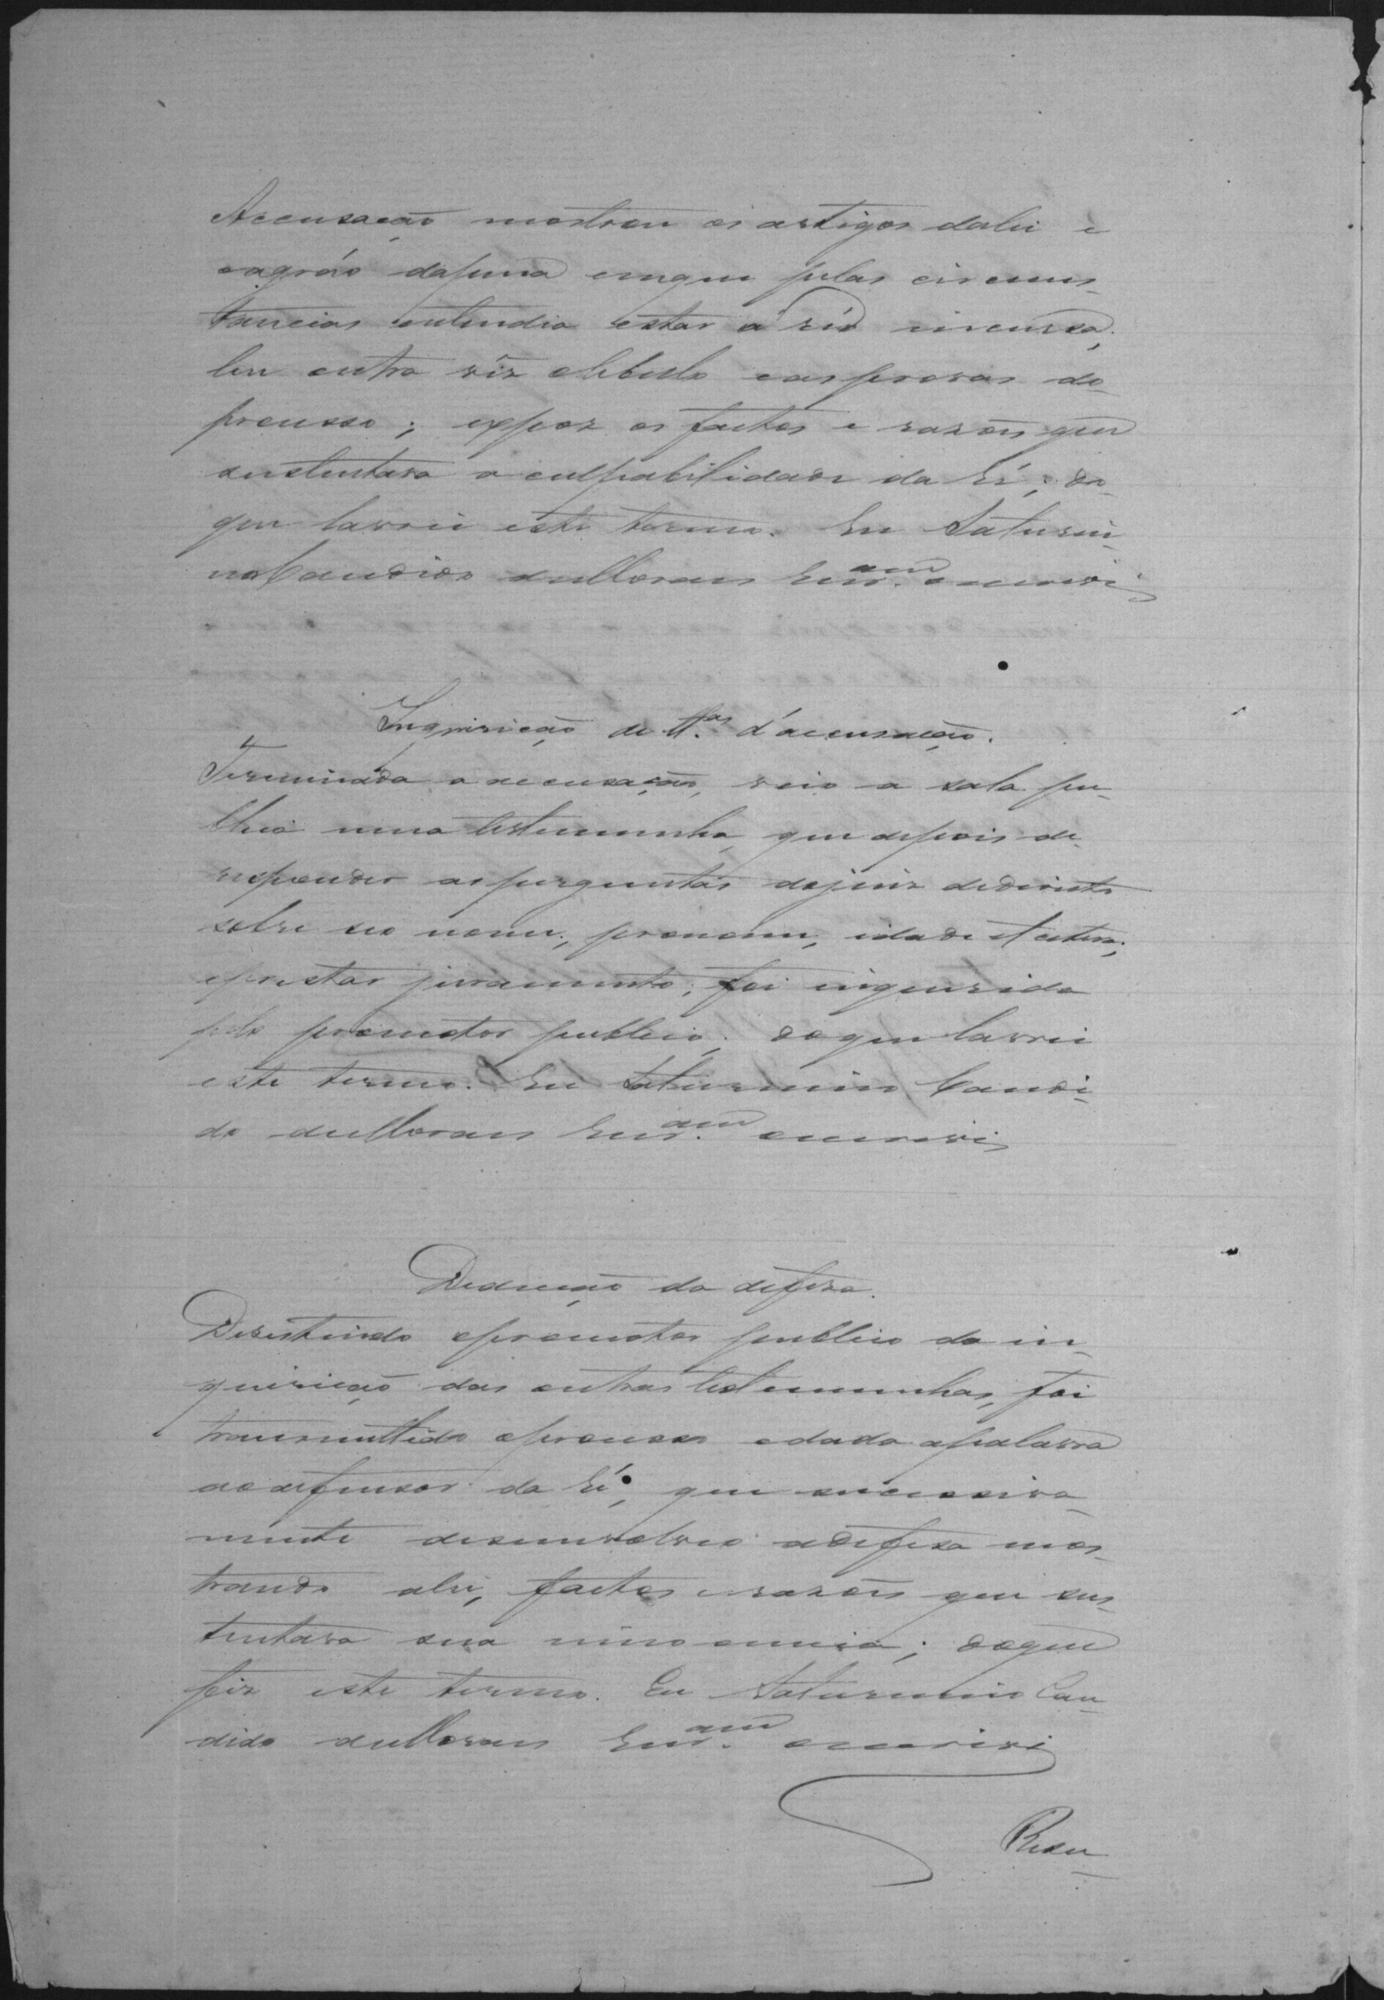 Accusação mostrou os artigos dalei e
ográo dapena emque pelas circums-
tancias entendia estar a ré incursa;
leu outra vêz olibello easprovas do
processo; expoz os factos e razões que
sustentava a culpabilidade da Ré; do
que lavrei este termo. Eu Saturni-
no Candido de Moraes Escr.am oescrevi

Inquirição de tt.as d'accusação.
Terminada a accusação, veio a sala pu-
blica uma testemunha, que depois de
responder asperguntas dojuiz dedireito
sobre seo nome, pronome, idade etcetera;
eprestar juramento, foi inquerida
pelo promotor publico; doque lavrei
este termo. Eu Saturnino Candi-
do de Moraes Escr.am oescrevi

Deducção da defesa.
Desistindo opromotor publico da in-
quirição das outras testemunhas, foi
transmittido oprocesso edada apalavra
aodefensor da Ré, que successiva-
mente desenvolveo adefesa mos-
trando alei, factos erazões que sus-
tentava sua innocencia; doque
fiz este termo. Eu Saturnino Can-
dido de Moraes Escr.am oescrevi